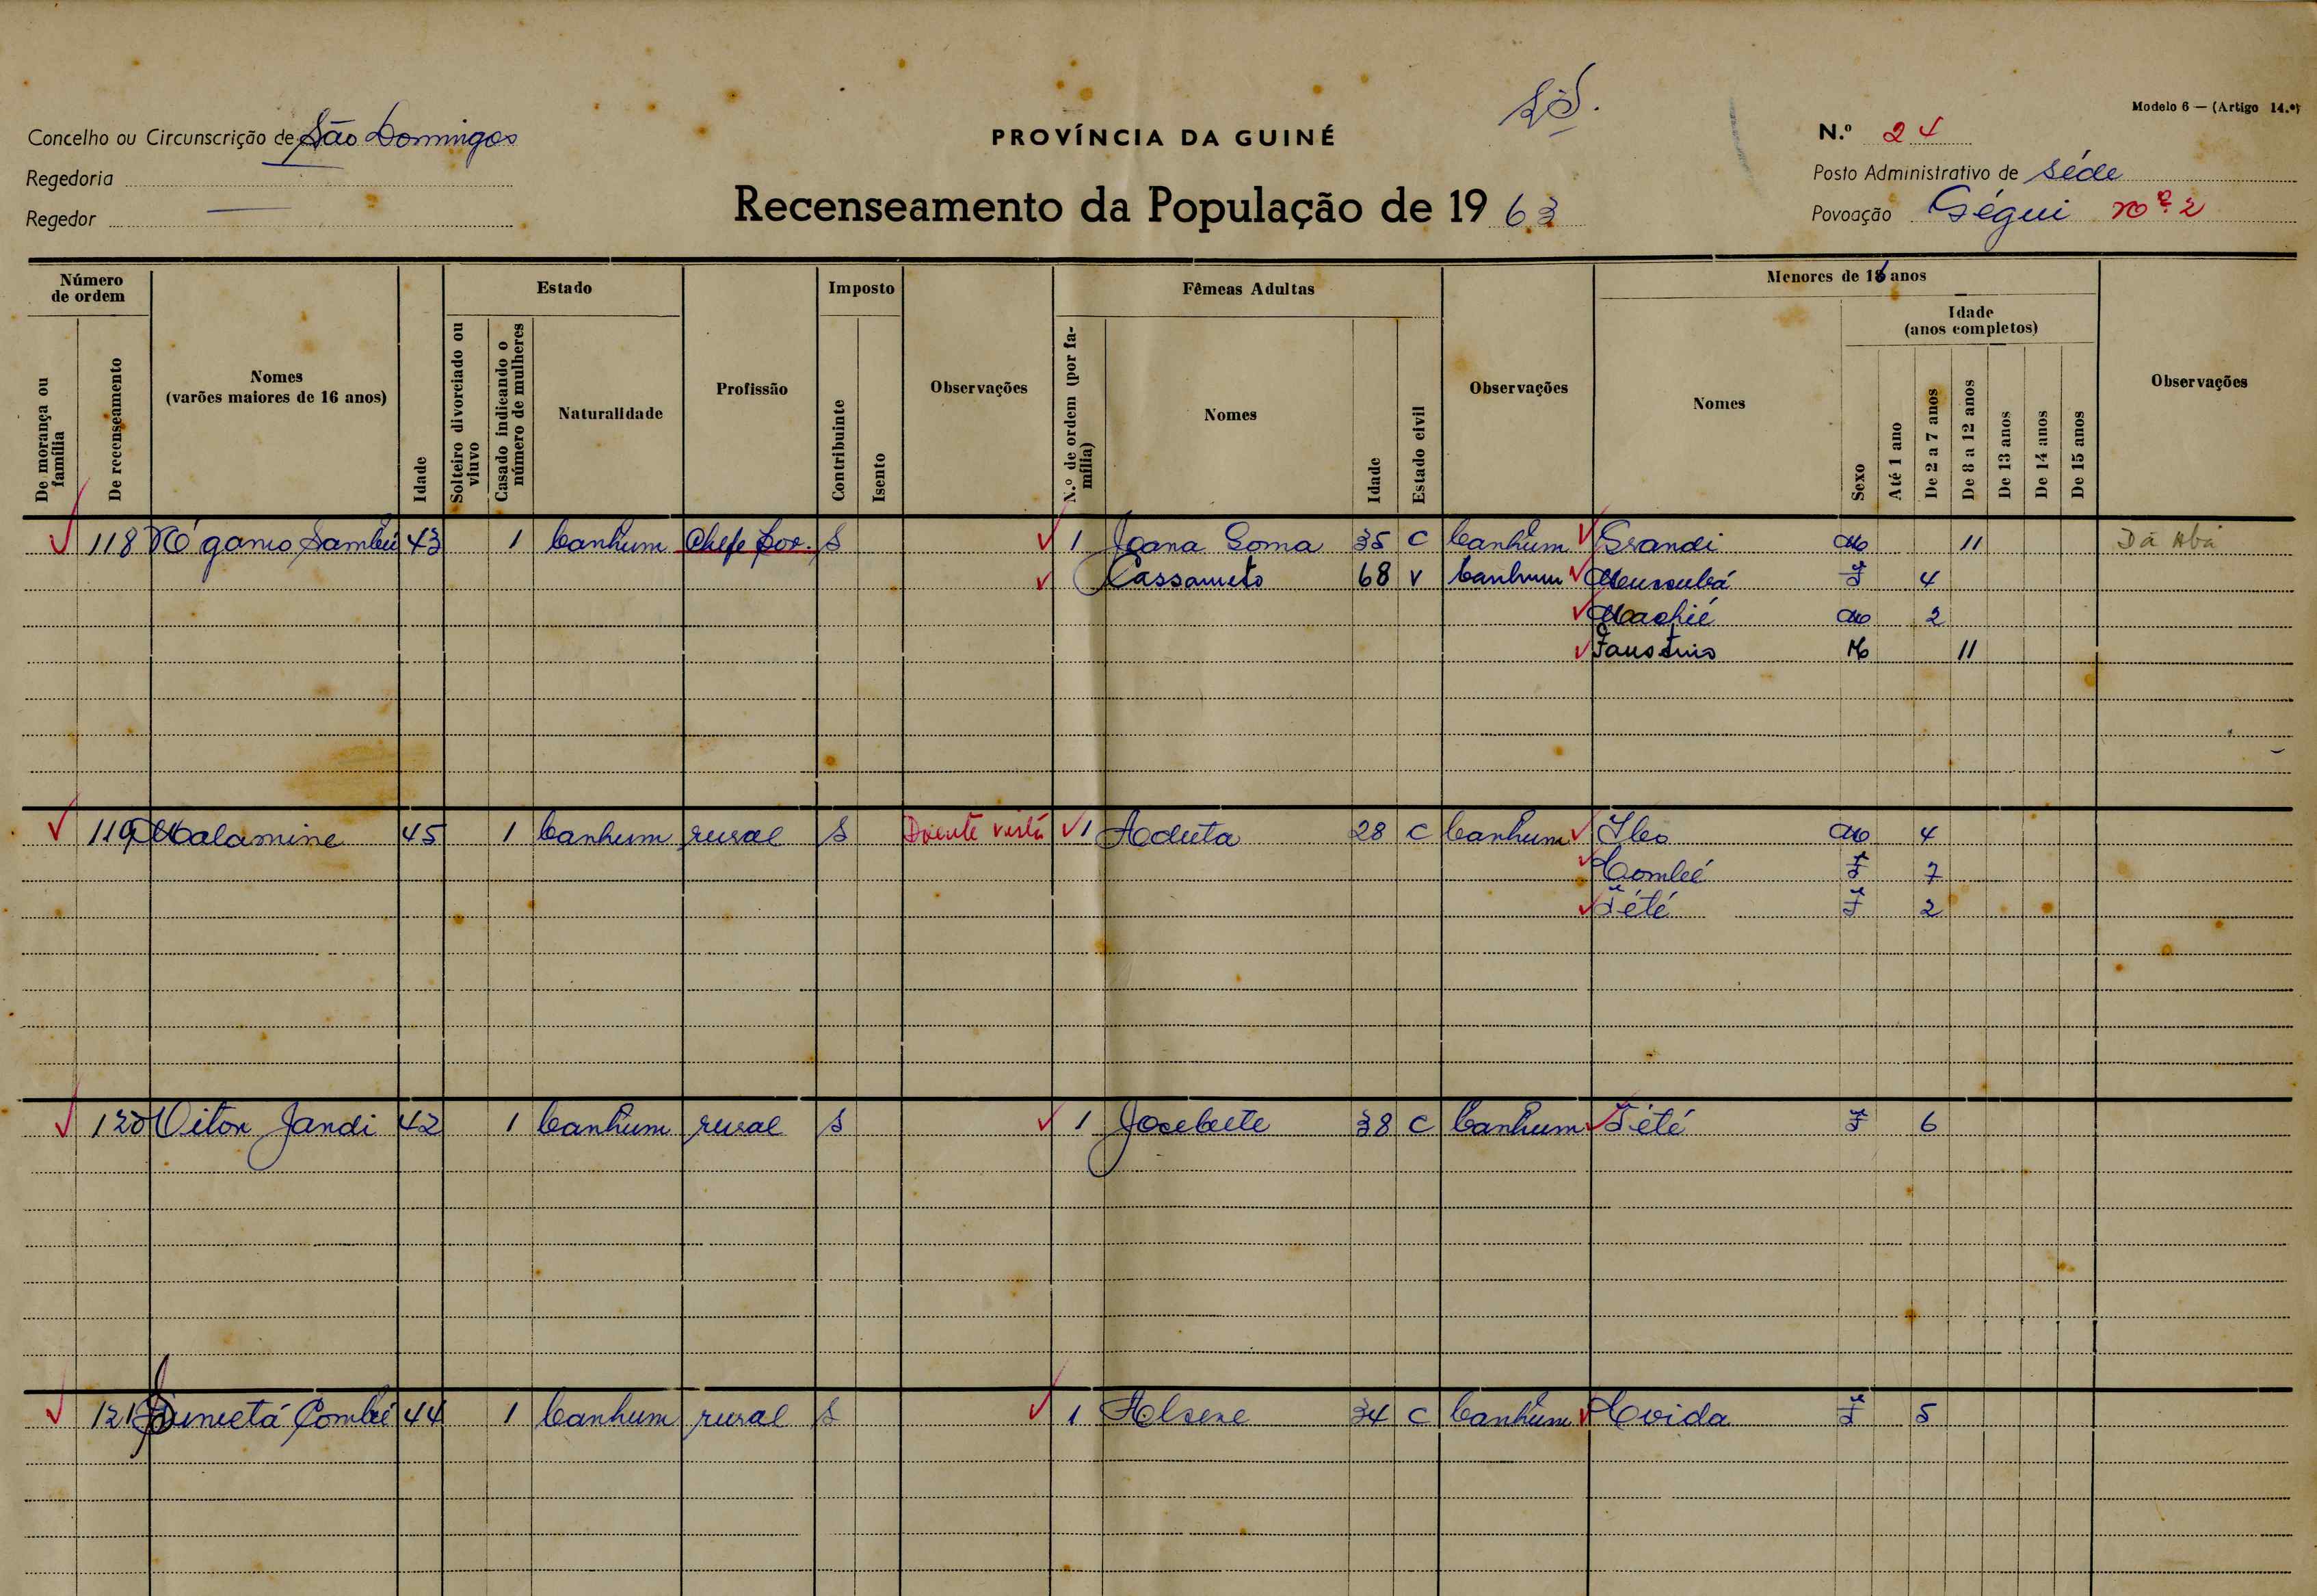 Modelo 6 — (Artigo 14.º)
Concelho ou Circunscrição de São Domingos
PROVÍNCIA DA GUINÉ
N.º 24
Regedoria
Posto Administrativo de Séde
Regedor
Recenseamento da População de 1963
Povoação Ségui nº 2
Número de ordem
De morança ou família
De recenseamento
Nomes
(varões maiores de 16 anos)
Idade
Estado
Solteiro divorciado ou viuvo
Casado indicando o número de mulheres
Naturalidade
Profissão
Imposto
Contribuinte
Isento
Observações
Fêmeas Adultas
N.º de ordem (por família)
Nomes
Idade
Estado civil
Observações
Menores de 16 anos
Nomes
Sexo
Idade
(anos completos)
Até 1 ano
De 2 a 7 anos
De 8 a 12 anos
De 13 anos
De 14 anos
De 15 anos
Observações
118 43 1 banhum Chefe Pov. S 1 Joana Goma 35 C banhum M 11
Cassameto 68 V banhum F 4
M 2
Faustino M 11
119 Malamine 45 1 banhum rural S Doente 1 Aduta 28 C banhum M 4
Combé F 7
Tété F 2
120 Vitor Jandi 42 1 banhum rural S 1 38 C banhum Tété F 6
121 44 1 banhum rural S 1 34 C banhum F 5